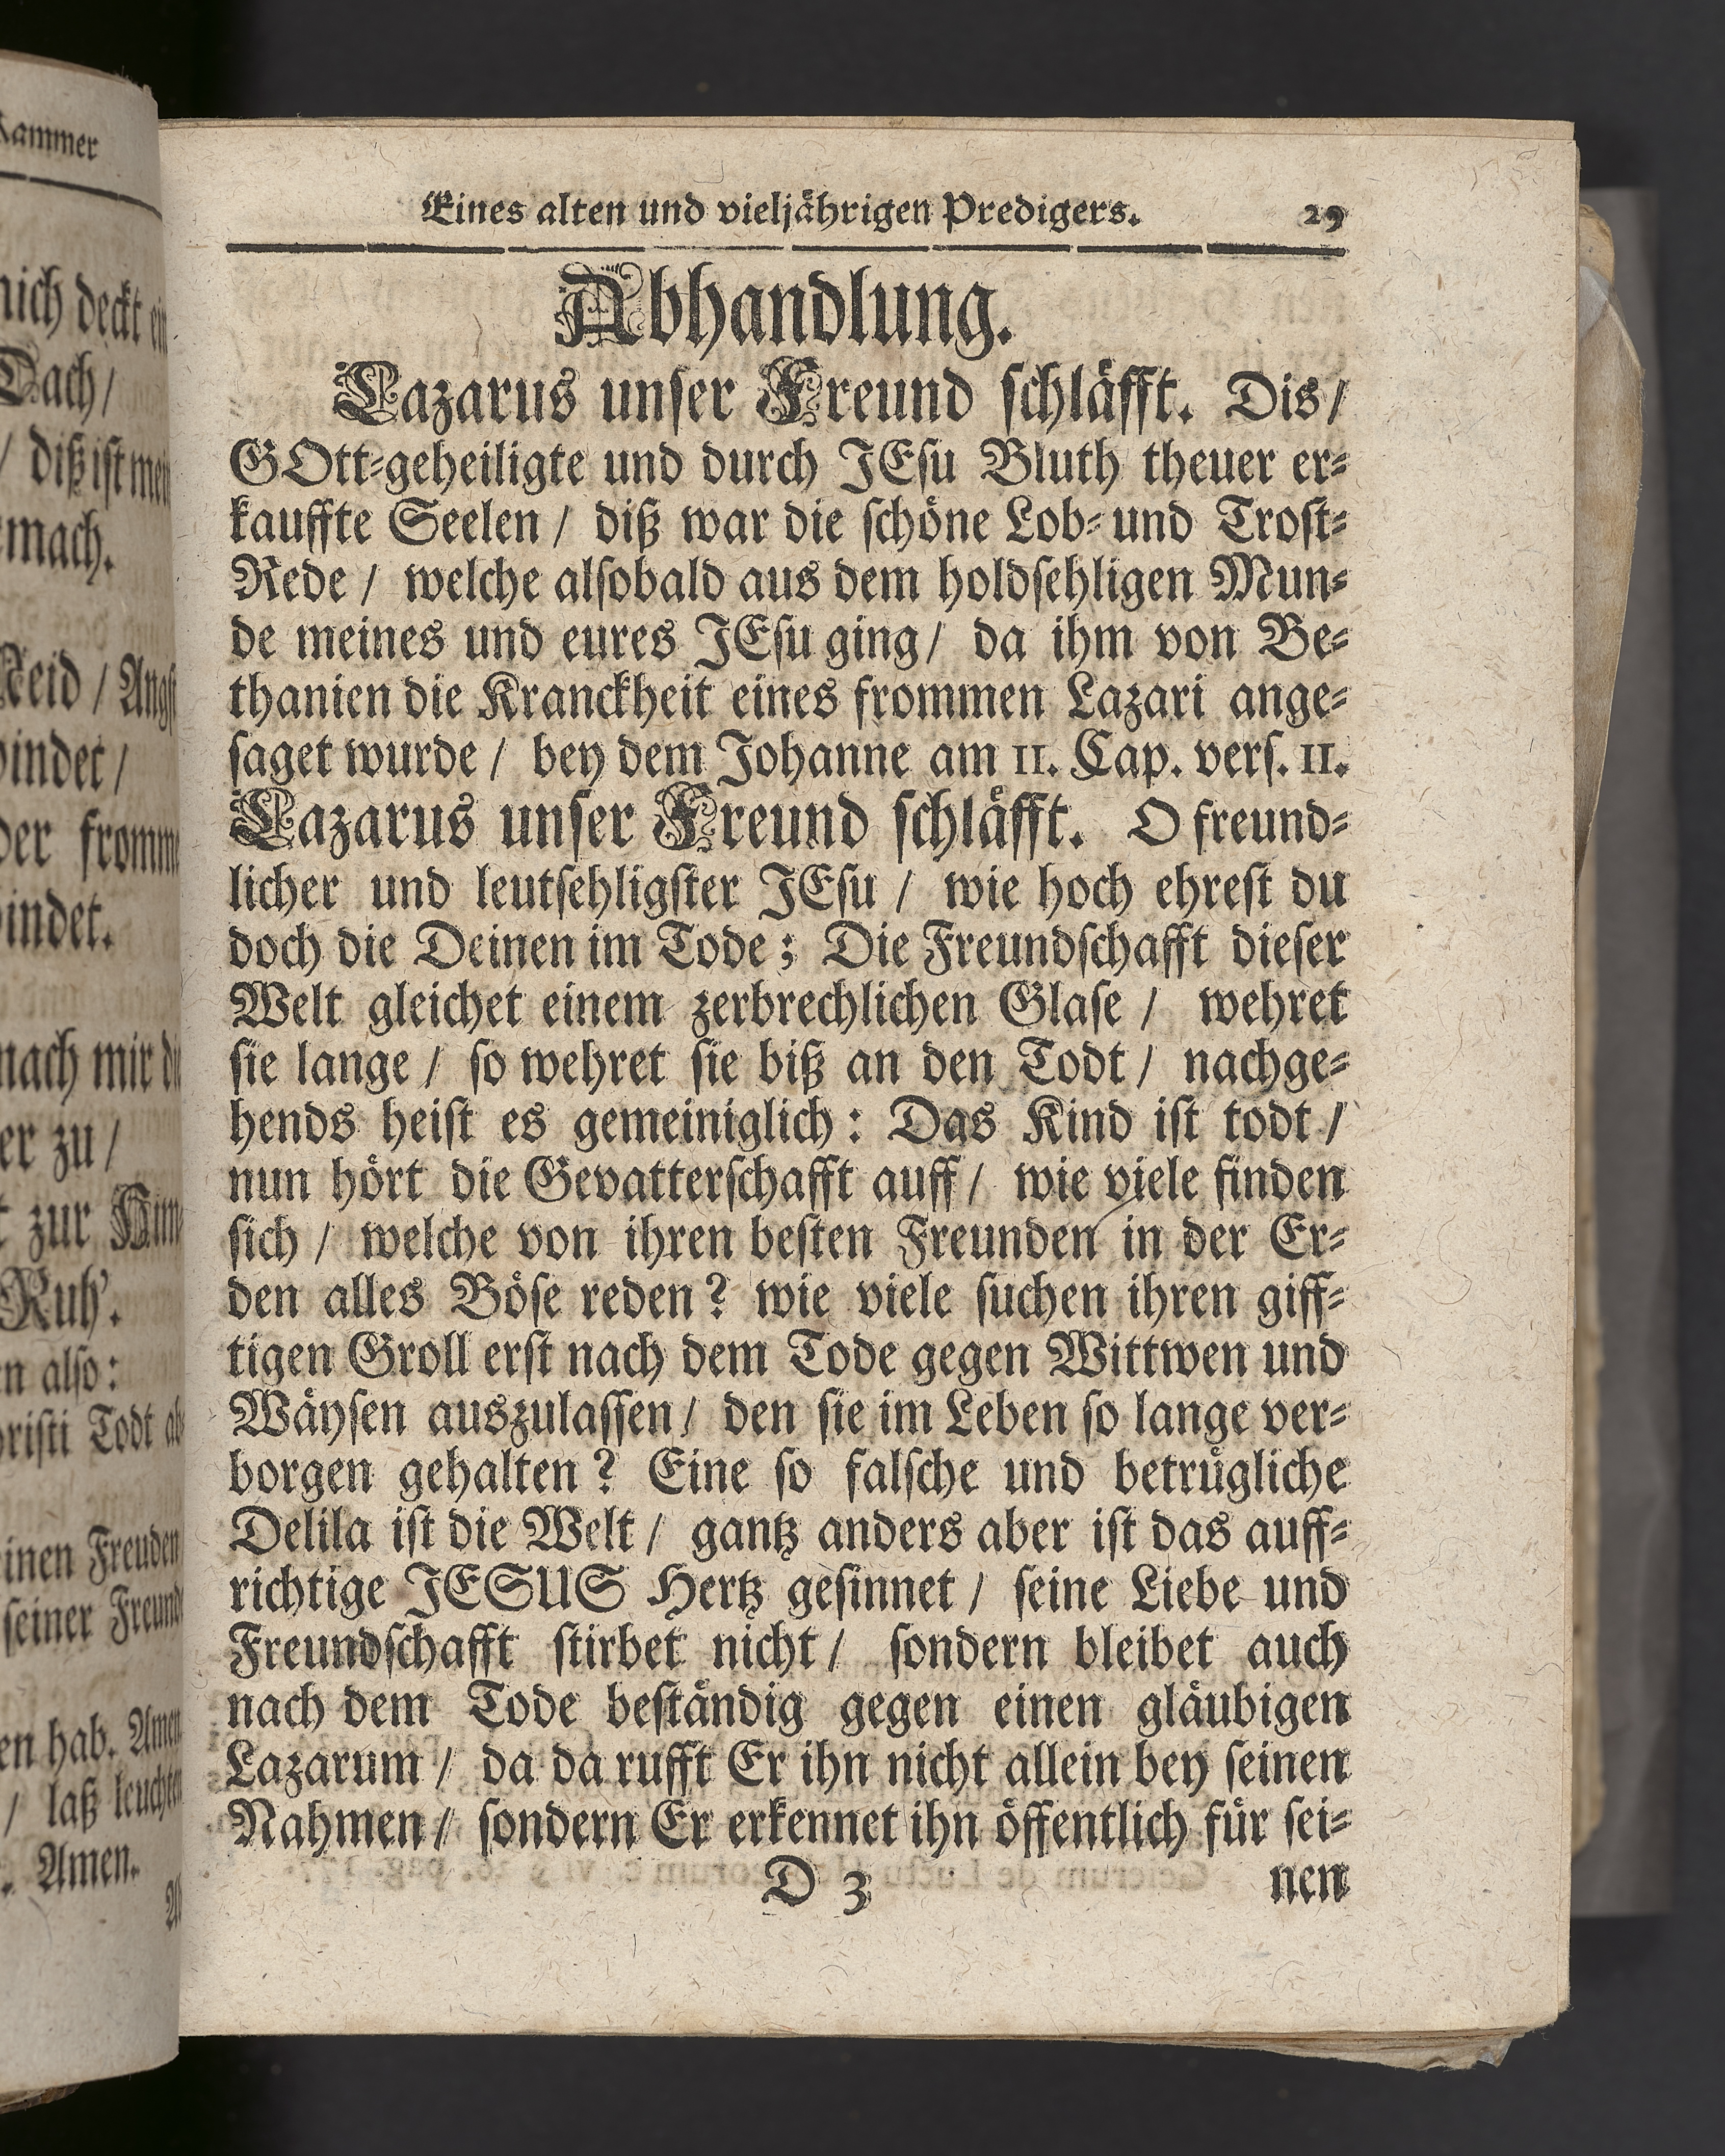 Eines alten und vieljährigen Predigers. 29
Abhandlung.
Lazarus unser Freund schläfft. Dis/
GOtt-geheiligte und durch JEsu Bluth theuer er-
kauffte Seelen / diß war die schöne Lob- und Trost-
Rede / welche alsobald aus dem holdsehligen Mun-
de meines und eures JEsu ging/ da ihm von Be-
thanien die Kranckheit eines frommen Lazari ange-
saget wurde / bey dem Johanne am 11. Cap. vers. 11.
Lazarus unser Freund schläfft. O freund-
licher und leutsehligster JEsu / wie hoch ehrest du
doch die Deinen im Tode; Die Freundschafft dieser
Welt gleichet einem zerbrechlichen Glase / wehret
sie lange / so wehret sie biß an den Todt/ nachge-
hends heist es gemeiniglich: Das Kind ist todt /
nun hört die Gevatterschafft auff/ wie viele finden
sich / welche von ihren besten Freunden in der Er-
den alles Böse reden? wie viele suchen ihren giff-
tigen Groll erst nach dem Tode gegen Wittwen und
Wäysen auszulassen/ den sie im Leben so lange ver-
borgen gehalten? Eine so falsche und betrügliche
Delila ist die Welt / gantz anders aber ist das auff-
richtige JESUS Hertz gesinnet / seine Liebe und
Freundschafft stirbet nicht / sondern bleibet auch
nach dem Tode beständig gegen einen gläubigen
Lazarum / da da rufft Er ihn nicht allein bey seinen
Nahmen / sondern Er erkennet ihn öffentlich für sei-
D 3 nen
Kammer
mich deckt ein
Dach/
/ diß ist mein
mach.
Neid / Angst
bindet /
der fromme
bindet.
nach mir die
er zu /
zur
Ruh'.
en also:
Christi Todt
einen Freuden
seiner Freund
en hab. Amen
/ laß leuchten
Amen.